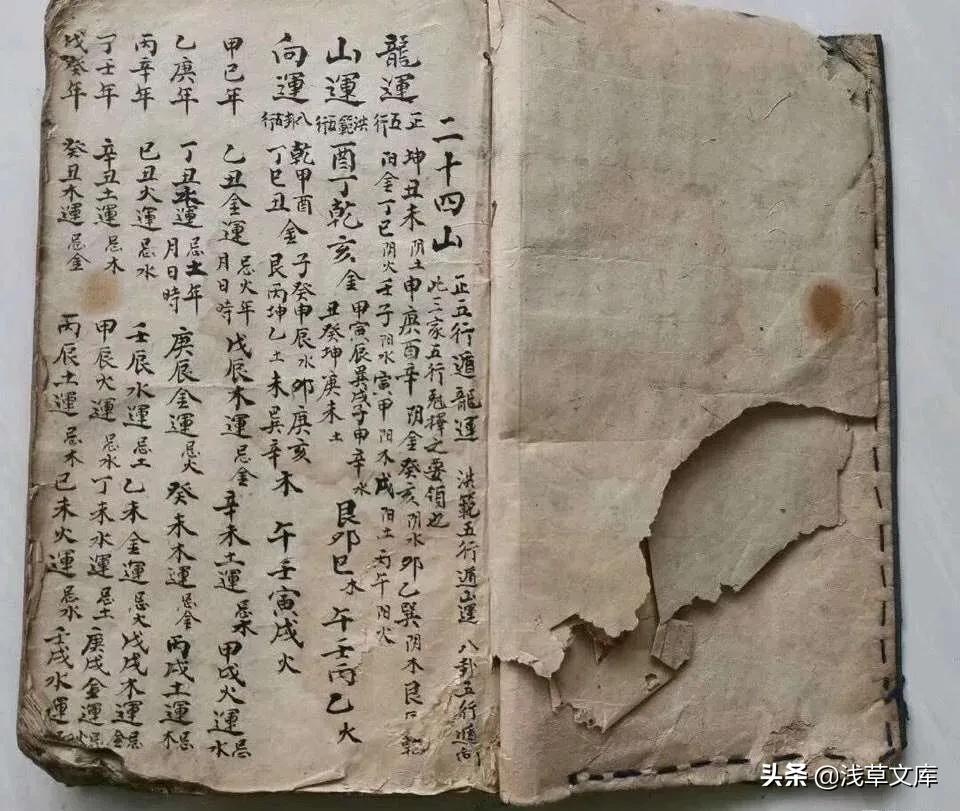 二十四山
正五行遁龍運 洪範五行遁山運 八卦五行遁向
此三家五行尅擇之要領也
龍運 正五行
坤丑未阴土申庚酉辛阴金癸亥阴水卯乙巽阴木艮
阳金丁巳阴火壬子阳水寅甲阳木戌阳土丙午阳火
山運 洪範五行 酉丁乾亥金 甲寅辰巽戌子申辛水 丑癸坤庚未土 艮卯巳木 午壬丙乙火
向運 八卦五行 乾甲酉丁巳丑金 子癸申辰水 艮丙坤乙土 卯庚亥未巽辛木 午壬寅戌火
甲己年 乙丑金運忌火年月日時 戊辰木運忌金 辛未土運忌木 甲戌火運忌水
乙庚年 丁丑水運忌土年月日時 庚辰金運忌火 癸未木運忌金 丙戌土運忌木
丙辛年 己丑火運忌水 壬辰水運忌土 乙未金運忌火 戊戌木運忌金
丁壬年 辛丑土運忌木 甲辰火運忌水 丁未水運忌土 庚戌金運忌火
戊癸年 癸丑木運忌金 丙辰土運忌木 己未火運忌水 壬戌水運
头条 @浅草文库